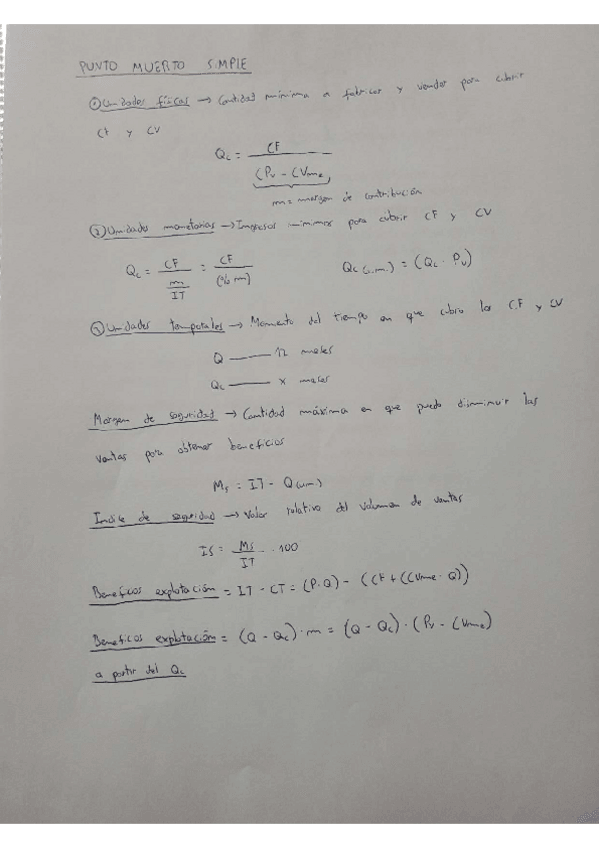 PUNTO MUERTO SIMPLE
① Unidades físicas → Cantidad mínima a fabricar y vender para cubrir
CF y CV
Qc = CF / (Pv - CVme)
m = margen de contribución
② Unidades monetarias → Ingresos mínimos para cubrir CF y CV
Qc = CF / (m / IT) = CF / (% m)    Qc (u.m.) = (Qc · Pv)
③ Unidades temporales → Momento del tiempo en que cubro los CF y CV
Q —— 12 meses
Qc —— x meses
Margen de seguridad → Cantidad máxima en que puedo disminuir las
ventas para obtener beneficios
Ms = IT - Q(um)
Indice de seguridad → Valor relativo del volumen de ventas
IS = Ms / IT · 100
Beneficios explotación = IT - CT = (P·Q) - (CF + (CVme · Q))
Beneficos explotación = (Q - Qc) · m = (Q - Qc) · (Pv - CVme)
a partir del Qc